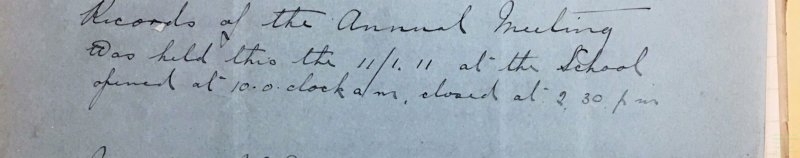 Records of the Annual Meeting
Was held this the 11/1.11 at the School
opened at 10.o.clock a/m, closed at 2.30. p m